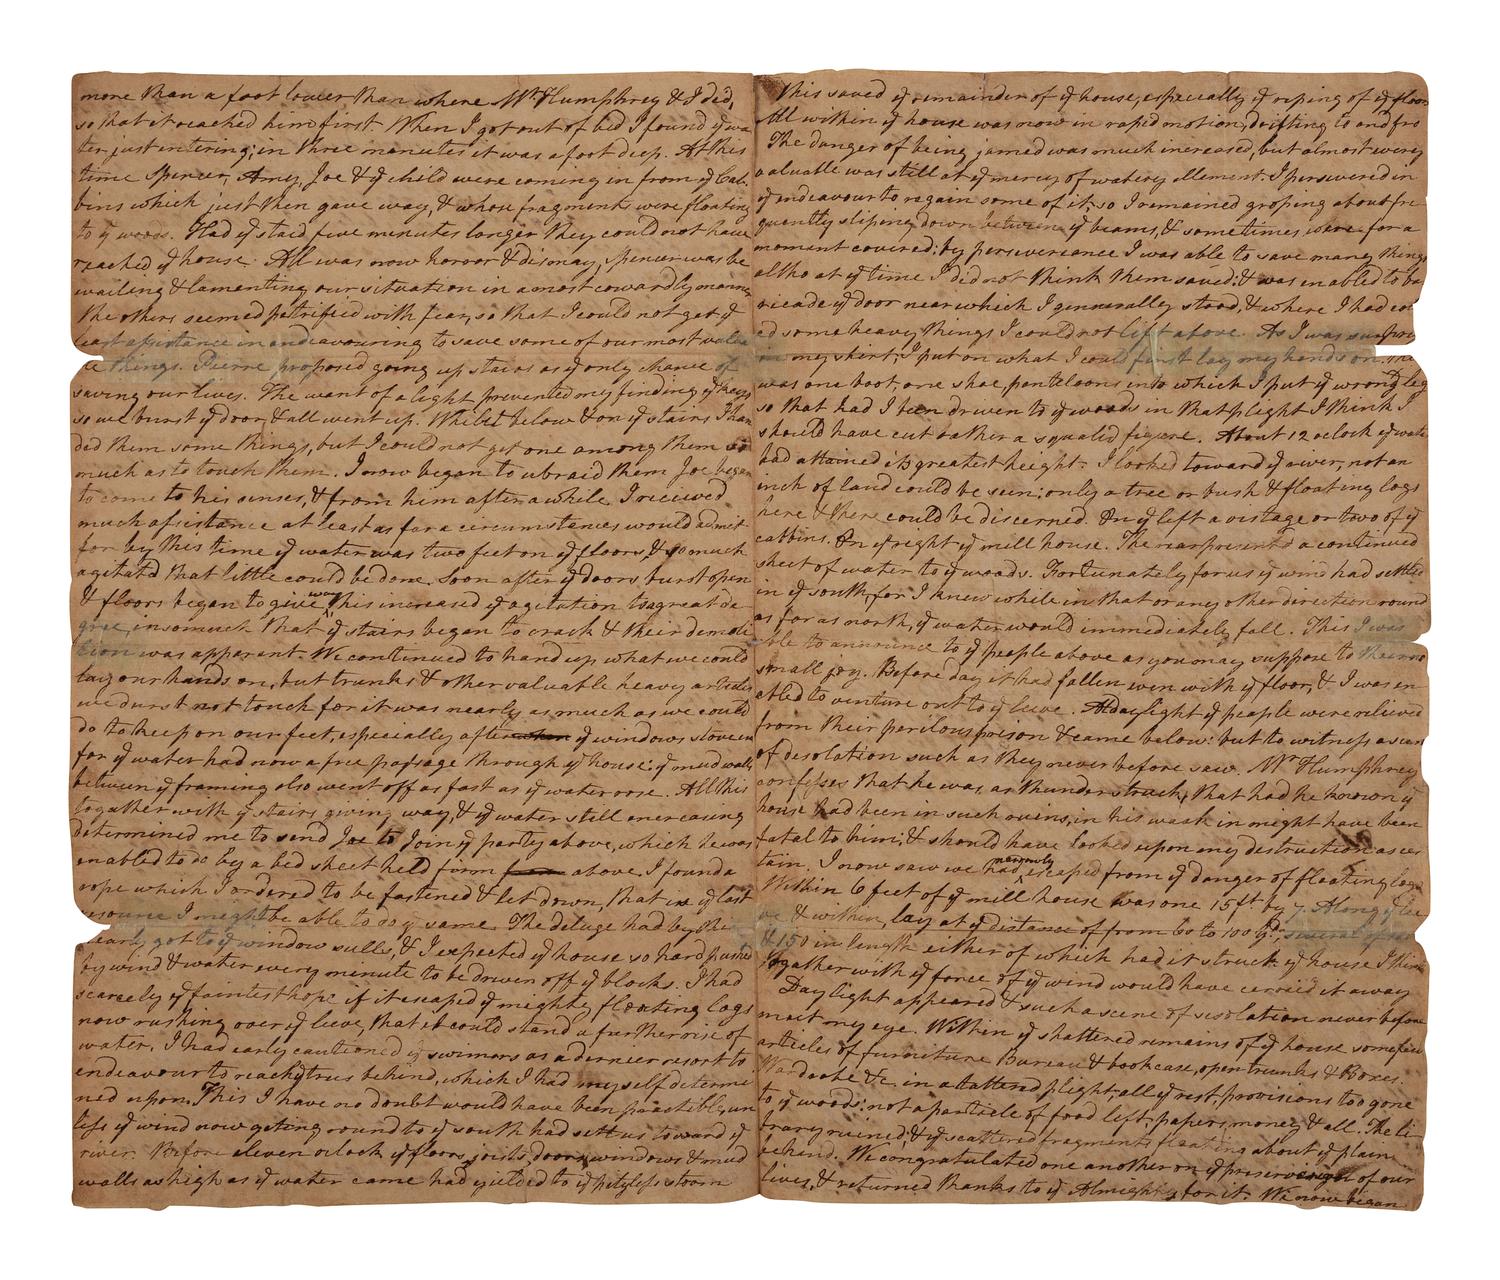 more than a foot lower than where Mr Humphrey & I did,
so that it reached him first. When I got out of bed I found ye wa
ter just entering; in three minutes it was a foot deep. At this
time Spencer, Amy, Joe & ye child were coming in from ye Cab-
bins which just then gave way, & whose fragments were floating
to ye woods. Had ye staid five minutes longer they could not have
reached ye house. All was now horror & dismay, Spencer was be
wailing & lamenting our situation in a most cowardly manner
the others seemed petrified with fear, so that I could not get ye
least assistance in endeavouring to save some of our most valua
ble things. Pierre proposed going up stairs as ye only chance of
saving our lives. The want of a light prevented my finding ye keys
so we burst ye door & all went up. Whilst below & on ye stairs I han
ded them some things, but I could not get one among them so
much as to touch them. I now began to ubraid them Joe began
to come to his senses, & from him after a while I received
much assistance at least as far a circumstances would admit
for by this time ye water was two feet on ye floors, & so much
agitatd that little could be done. Soon after ye doors burst open
& floors began to give way, this increased ye agitation to a great de-
gree, insomuch that ye stairs began to crack & their demoli
tion was apparent. We continued to hand up what we could
lay our hands on, but trunks & other valuable heavy articles
we durst not touch for it was nearly as much as we could
do to keep on our feet, especially after when ye windows stove in
for ye water had now a free passage through ye house: ye mud walls
between ye framing also went off as fast as ye water rose. All this
together with ye stairs giving way, & ye water still increasing
determined me to send Joe to join ye party above, which he was
enabled to do by a bed sheet held from above. I found a
rope which I ordered to be fastened & let down, that in ye last
resource I might be able to do ye same. The deluge had by this
nearly got to ye window sulls, & I expected ye house so hard pushed
by wind & water every minute to be driven off ye blocks. I had
scarcely ye faintest hope if it escaped ye mighty floating logs
now rushing over ye levee, that it could stand a further rise of
water. I had early cautioned ye swimers as a dernier resort to
endeavour to reach ye trees behind, which I had myself determi
ned upon. This I have no doubt would have been practible, un
less ye wind now geting round to ye south had sett us toward ye
river. Before eleven oclock ye floors, joists, doors, windows & mud
walls as high as ye water came had yielded to ye pityless storm
This saved ye remainder of ye house, especially ye riping of ye floor
All within ye house was now in rapid motion, drifting to and fro
The danger of being jamed was much increased, but almost every
valuable was still at ye mercy of watery ellement. I persevered in
ye endeavour to regain some of it, so I remained groping about fre-
quently sliping down between ye beams, & sometimes were for a
moment covered: by perseverance I was able to save many things
altho at ye time I did not think them saved: & was enabled to ba
ricade ye door near which I gennerally stood, & where I had
some heavy things I could not lift above. As I was
in my shirt, I put on what I could first lay my hands on,
was one boot, one shoe, panteloons into which I put ye wrong leg
so that had I been driven to ye woods in that plight I think I
should have cut rather a squalid figure. About 12 oclock ye water
had attained its greatest height. I looked toward ye river, not an
inch of land could be seen: only a tree or bush & floating logs
here & there could be discerned. On ye left a vistage or two of ye
cabbins. On ye right ye mill house. The rear presented a continued
sheet of water to ye woods. Fortunately for us ye wind had settled
in ye south, for I knew while in that or any other direction round
as far as north, ye water would immediately fall. This I was
able to announce to ye people above as you may suppose to their no
small joy. Before day it had fallen even with ye floor, & I was en-
abled to venture out to ye levee. At daylight ye people were relieved
from their perilous prison & came below: but to witness a scene
of desolation such as they never before saw. Mr Humphrey
confesses that he was, as thunderstruck, that had he known ye
house had been in such ruins, in his weak in might have been
fatal to him; & should have looked upon my destruction as cer
tain. I now saw we had narrowly escaped from ye danger of floating logs
Within 6 feet of ye mill house was one 15 ft. by 7. Along ye le
ve & within, lay at ye distance of from 60 to 100 yds,
& 150 in length either of which had it struck ye house I think
together with ye force of ye wind would have carried it away
Day light appeared & such a scene of desolation never before
meet my eye. Within ye shattered remains of ye house some few
articles of furniture Bureau & bookcase, open trunks & Boxes.
Wardrobe &c, in a tattered plight; all ye rest, provisions too gone
to ye woods: not a particle of food left; papers, money & all. The li-
brary ruined; & ye scattered fragments floating about ye plain
behind. We congratulated one another on ye preserveingn of our
lives, & returned thanks to ye Almighty for it. We now began